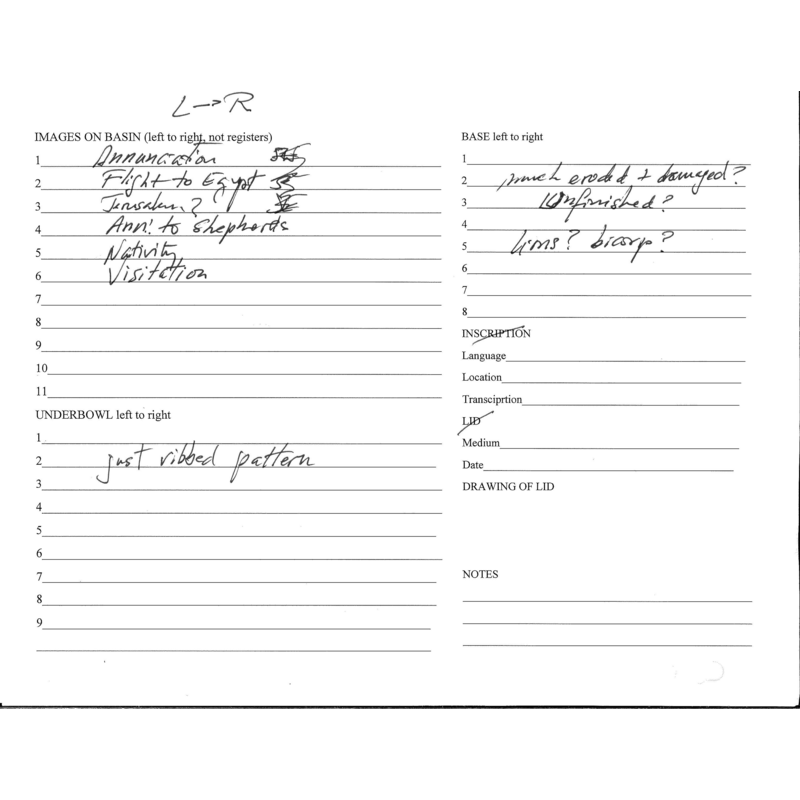 L → R
IMAGES ON BASIN (left to right, not registers)
1 Annunciation
2 Flight to Egypt
3 Jerusalem?
4 Ann! to Shepherds
5 Nativity
6 Visitation
7
8
9
10
11
UNDERBOWL left to right
1
2 just ribbed pattern
3
4
5
6
7
8
9
BASE left to right
1
2 much eroded + damaged?
3 Unfinished?
4
5 lions? bicorp?
6
7
8
INSCRIPTION
Language
Location
Transciprtion
LID
Medium
Date
DRAWING OF LID
NOTES